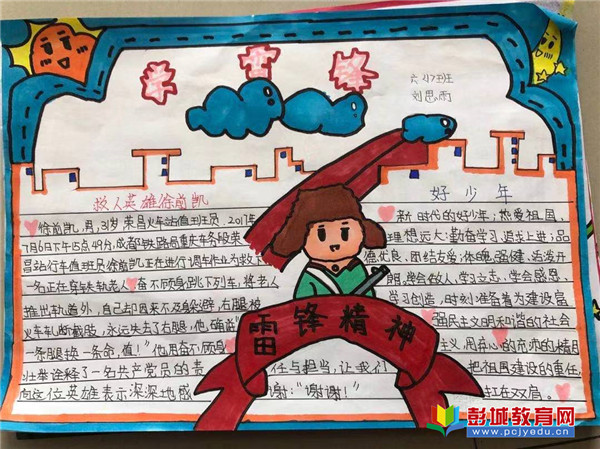 学雷锋
六(2)班
刘思雨
救人英雄徐前凯
徐前凯,男,31岁,荣昌火车站值班员,2017年
7月6日下午15点49分,成都铁路局重庆车务段荣
昌站行车值班员徐前凯正在进行调车作业为救
一名正在穿铁轨老人 奋不顾身跳下列车,将老人
推出轨道外,自己却因来不及躲避,右腿被
火车轧断截肢,永远失去了右腿,他
一条腿换一条命,值!"他用奋不顾身
壮举诠释了一名共产党员的
任与担当,让我们
向这位英雄表示深深地感
谢:"谢谢!"
好少年
新时代的好少年:热爱祖国,
理想远大;勤奋学习,追求上进;品
德优良,团结友爱;体魄强健,活泼开
朗,学会做人,学习立志,学会感恩,
学习创造,时刻准备着为建设富
强民主文明和谐的社会
主义,用
把祖国建设的重任
扛在双肩。
雷锋精神
彭城教育网
www.pcjyedu.cn